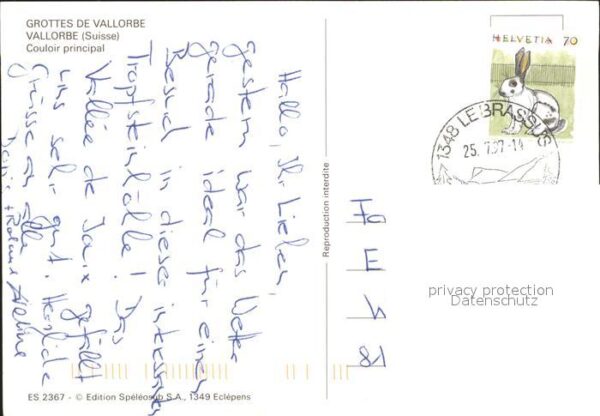 GROTTES DE VALLORBE
VALLORBE (Suisse)
Couloir principal
Hallo, Ihr Lieben,
gestern war das Wetter
gerade ideal für einen
Besuch in dieser interessanten
Tropfsteinhölle! Das
Vallée de Joux gefällt
uns sehr gut. Herzliche
Grüsse an alle
+ Roland
Reproduction interdite
HELVETIA 70
1348 LE BRASSUS
25. 7.97-14
privacy protection
Datenschutz
ES 2367 - © Edition Spéléosub S.A., 1349 Eclépens